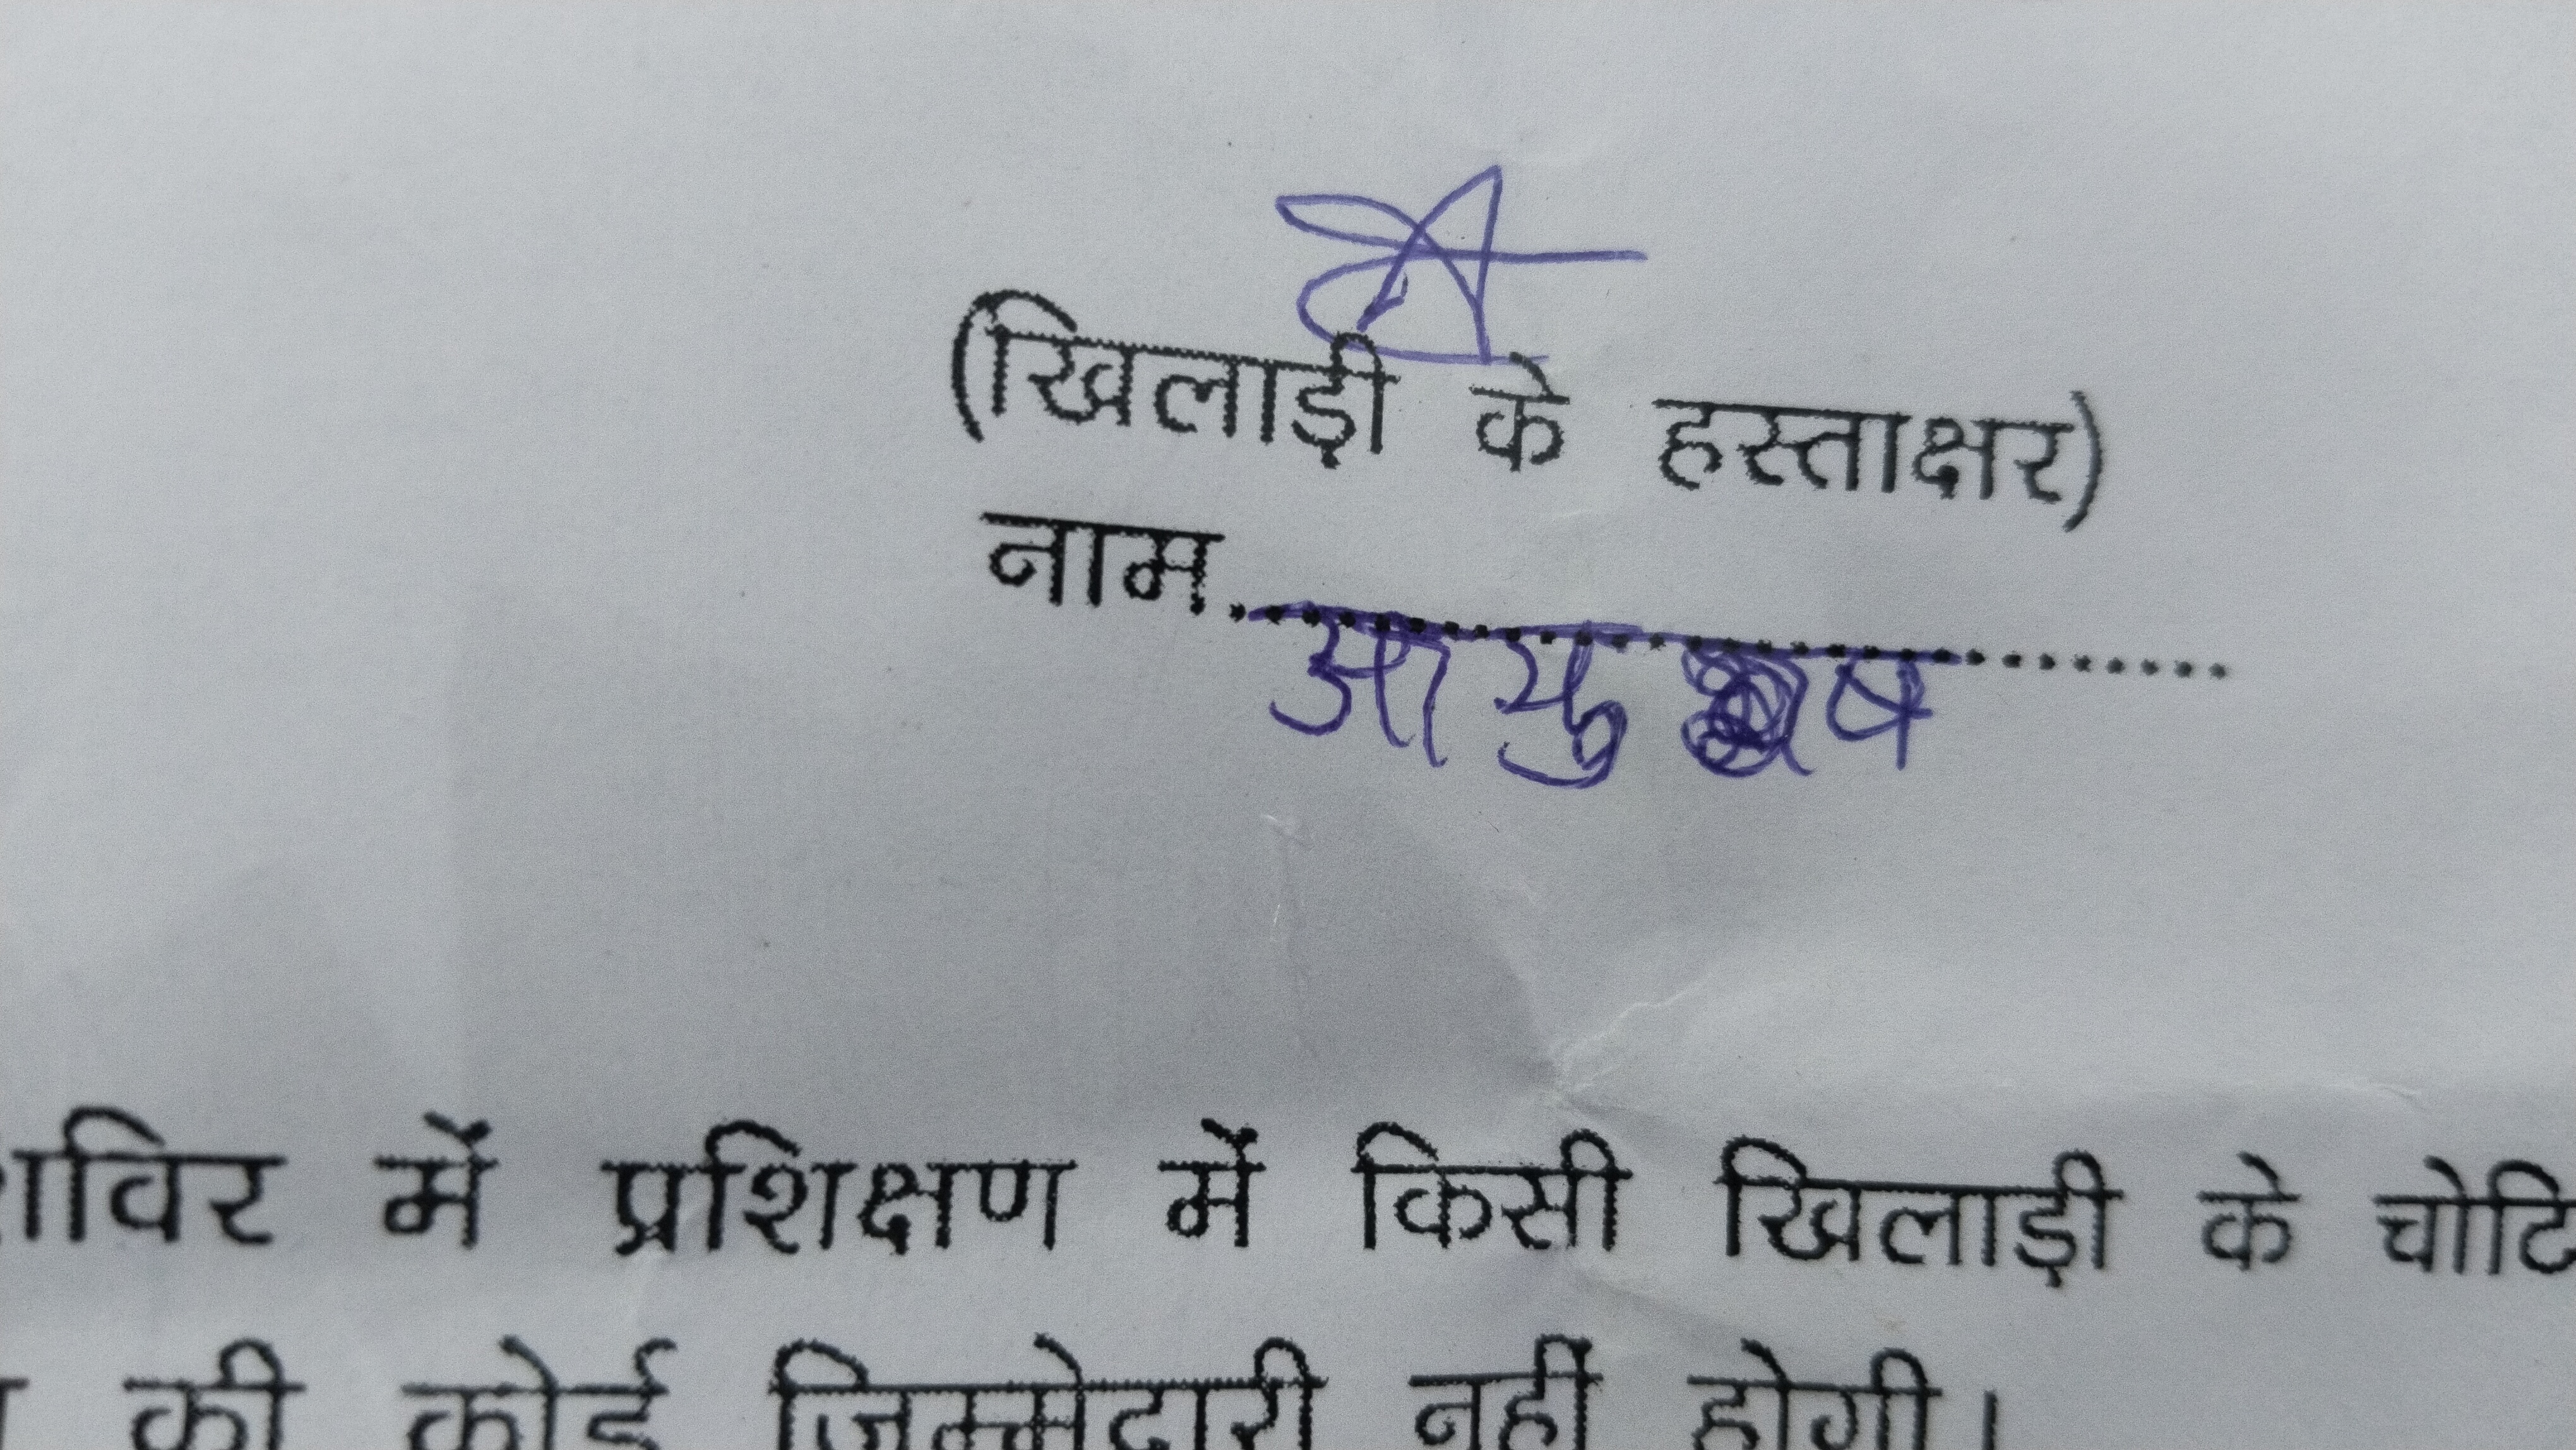 (खिलाड़ी के हस्ताक्षर)
नाम.............................. आयुष
में प्रशिक्षण में किसी खिलाड़ी के
की कोई जिम्मेदारी नहीं होगी।